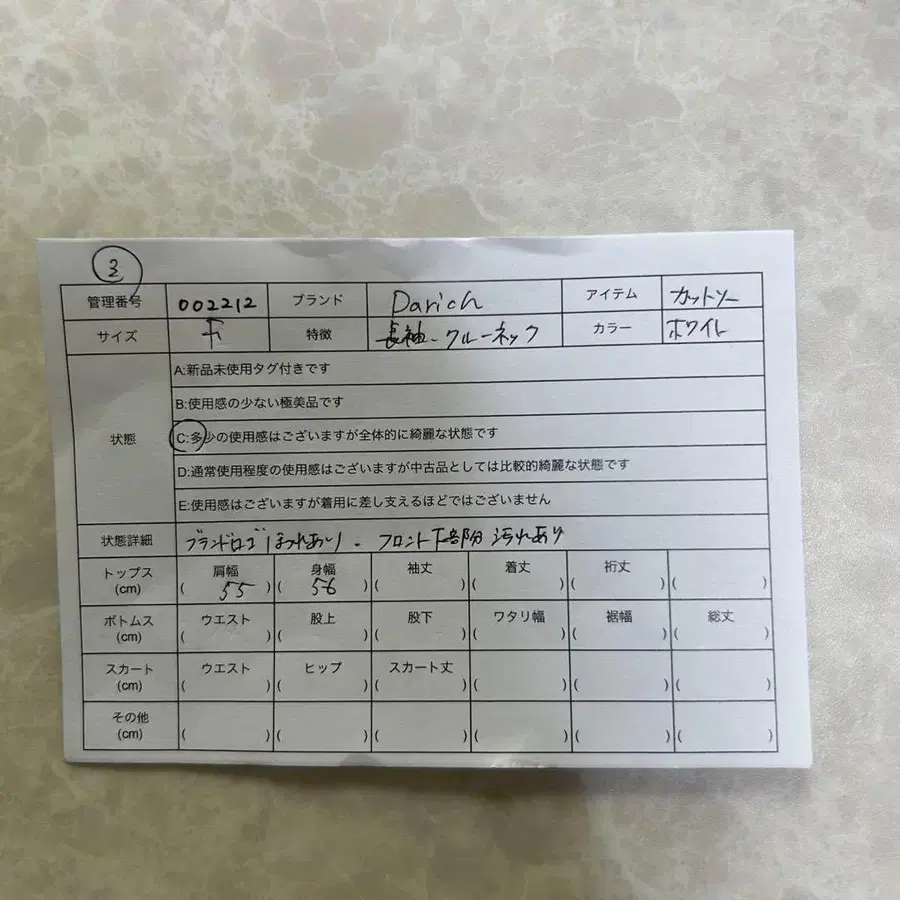 3
管理番号 002212 ブランド Darich アイテム カットソー
サイズ F 特徴 長袖、クルーネック カラー ホワイト
状態
A:新品未使用タグ付きです
B:使用感の少ない極美品です
C:多少の使用感はございますが全体的に綺麗な状態です
D:通常使用程度の使用感はございますが中古品としては比較的綺麗な状態です
E:使用感はございますが着用に差し支えるほどではございません
状態詳細 ブランドロゴほつれあり、フロント下部分汚れあり
トップス 肩幅 身幅 袖丈 着丈 裄丈
(cm) ( 55 ) ( 56 ) ( ) ( ) ( ) ( )
ボトムス ウエスト 股上 股下 ワタリ幅 裾幅 総丈
(cm) ( ) ( ) ( ) ( ) ( ) ( )
スカート ウエスト ヒップ スカート丈
(cm) ( ) ( ) ( ) ( ) ( ) ( )
その他
(cm) ( ) ( ) ( ) ( ) ( ) ( )